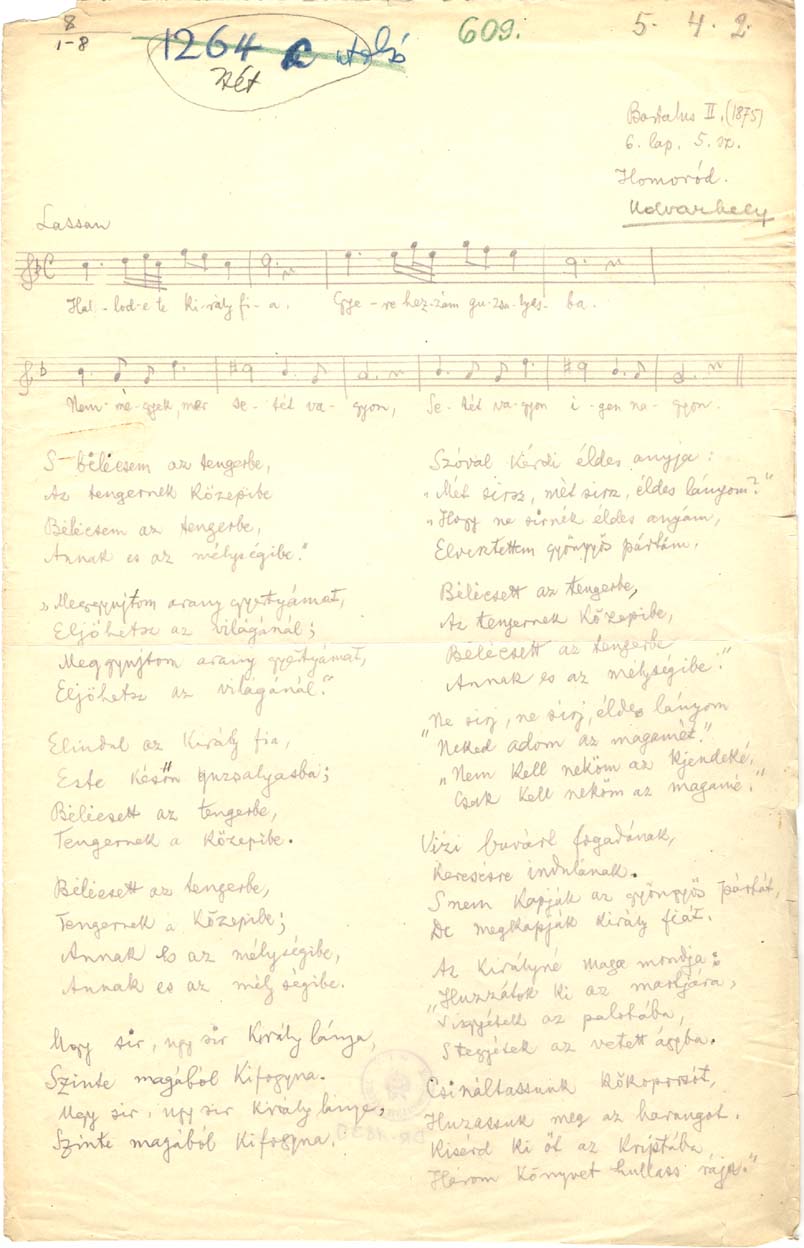 8
1-8
1264 C utolsó
609.
5. 4. 2.
Bartalus II. (1875)
6. lap. 5. sz.
Homoród.
Udvarhely
Lassan
Hal-lod-e te ki-rály fi-a. Gye-re hez-zám gu-zsa-lyas-ba.
Nem më-gyek, mer se-tét va-gyon, Se-tét va-gyon i-gen na-gyon.
S bélécsem az tengerbe,
Az tengernek közepibe
Bélécsem az tengerbe,
Annak es az mélységibe."
„Meggyujtom arany gyertyámat,
Eljöhetsz az világánál;
Meggyujtom arany gyertyámat,
Eljöhetsz az világánál."
Elindul az király fia,
Este késön guzsalyasba;
Bélécsett az tengerbe,
Tengernek a közepibe.
Bélécsett az tengerbe,
Tengernek a közepibe;
Annak es az mélységibe,
Annak es az mélységibe.
Ugy sir, ugy sir király lánya,
Szinte magából kifogyna.
Ugy sir, ugy sir király lánya,
Szinte magából kifogyna.
Szóval kérdi éldes anyja:
„Mét sirsz, mét sirsz, éldes lányom?"
„Hogy ne sirnék éldes anyám,
Elvesztettem gyöngyös pártám.
Bélécsett az tengerbe,
Az tengernek közepibe,
Bélécsett az tengerbe
Annak es az mélységibe."
„Ne sirj, ne sirj, éldes lányom
Neked adom az magamét."
„Nem kell neköm az kjendeké,
Csak kell neköm az magamé."
Vizi buvárt fogadának,
Keresésre indulának.
S nem kapják az gyöngyös pártát,
De megkapják király fiát.
Az királyné maga mondja:
„Huzzátok ki az martjára,
Vigyétek az palotába,
S tegyétek az vetett ágyba.
Csináltassunk kőkoporsót,
Huzassuk meg az harangot.
Kisérd ki őt az kriptába
Három könyvet hullass rája."